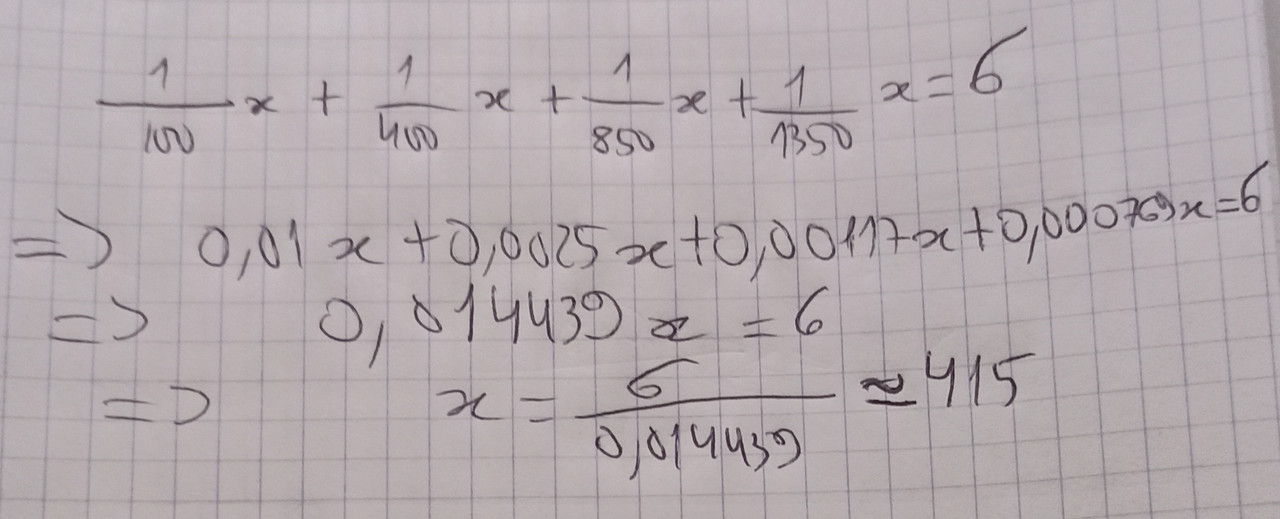 1/100 x + 1/400 x + 1/850 x + 1/1350 x = 6
=> 0,01 x + 0,0025 x + 0,00117 x + 0,000769 x = 6
=> 0,014439 x = 6
=> x = 6/0,014439 ≈ 415